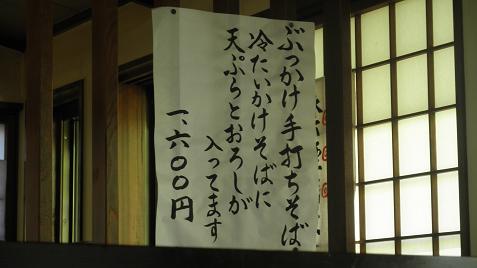 ぶっかけ手打ちそば
冷たいかけそばに
天ぷらとおろしが
入ってます
一、六〇〇円